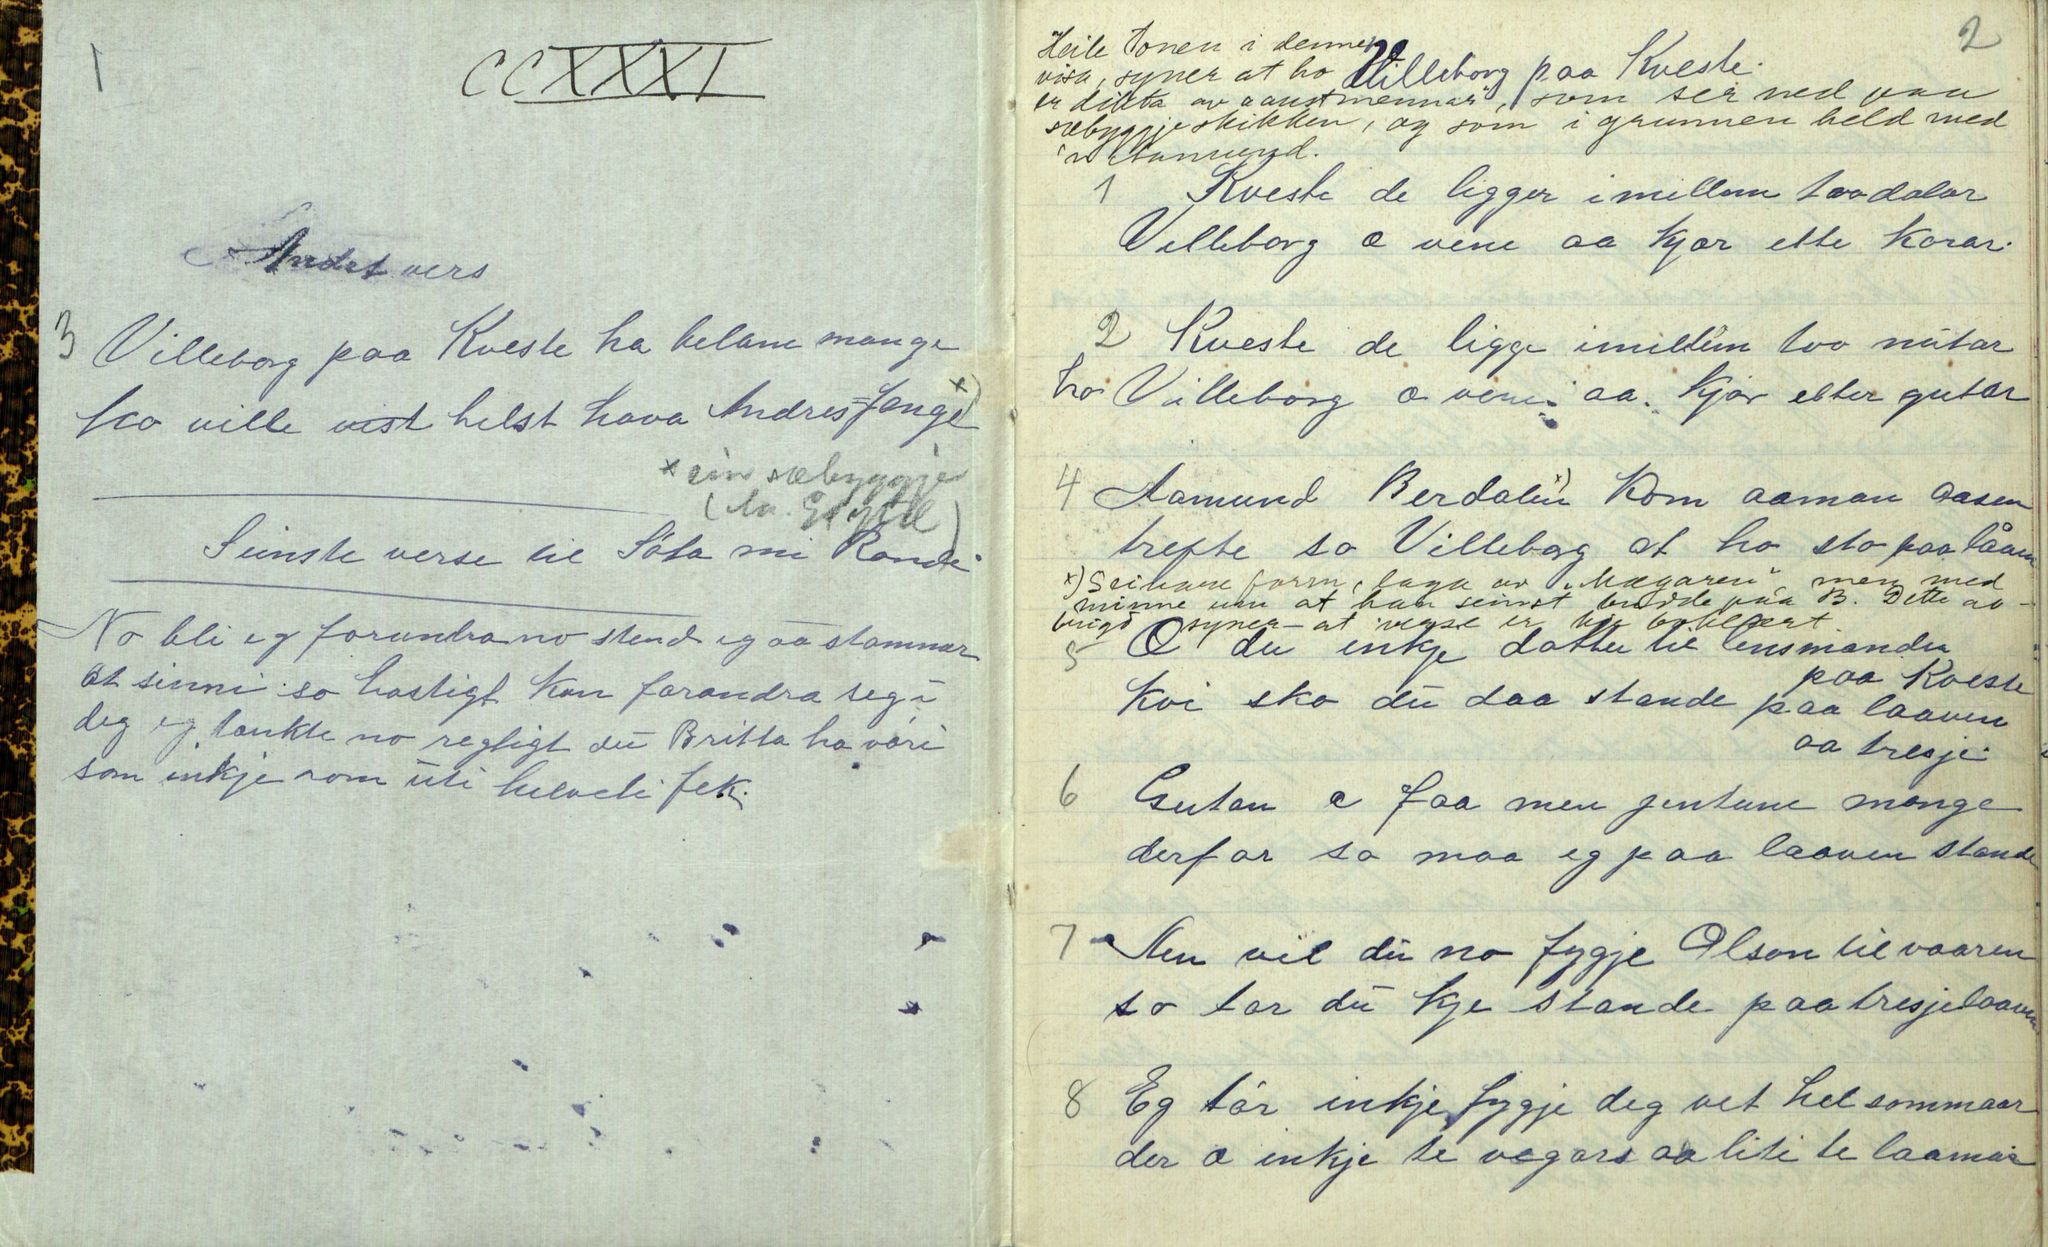 1
CCXXXI
Andet vers
3 Villeborg paa Kveste ha belane mange
ho ville vist helst hava Andres Jange x)
x ein sæbyggje
Siinste verse til Sòta mi Randi
No bli eg forundra no stend eg aa stammar
at sinni so hastigt kan forandra seg i
deg eg tænkte no regtigt dú Britta ha vori
som inkje rom úti helveti fek.
2
Heile tonen i denne
visa, syner at ho
Villeborg paa Kveste.
er dikta av "aaustmennar", som ser ned paa
sæbyggjeskikken, og som i grunnen held med
'n Aamund.
1 Kveste de ligger imillom tvo dalar
Villeborg æ vene aa kjær ette karar.
2 Kveste de ligge imillom tvo nútar
ho Villeborg æ vene aa kjær etter gutar
4 Aamund Berdalen x) kom aaman aasen
trefte so Villeborg at ho sto paa låven
x) Seinare form, laga av "Mægaren", men med
minne um at han seinst budde paa B. Dette av-
syner at verse er
5 Æ du inkje dotter til lensmanden
paa Kveste
kvi sko dú daa stande paa laaven
aa tresje.
6 Gutan æ faa men jentune mange
derfor so maa eg paa laaven stande
7 Aen vil dú no fygje Olson til vaaren
so tar dú kje stande paa tresjelaaven
8 Eg tór inkje fygje deg vet hel sommaar
der æ inkje te vegars aa liti te laamar